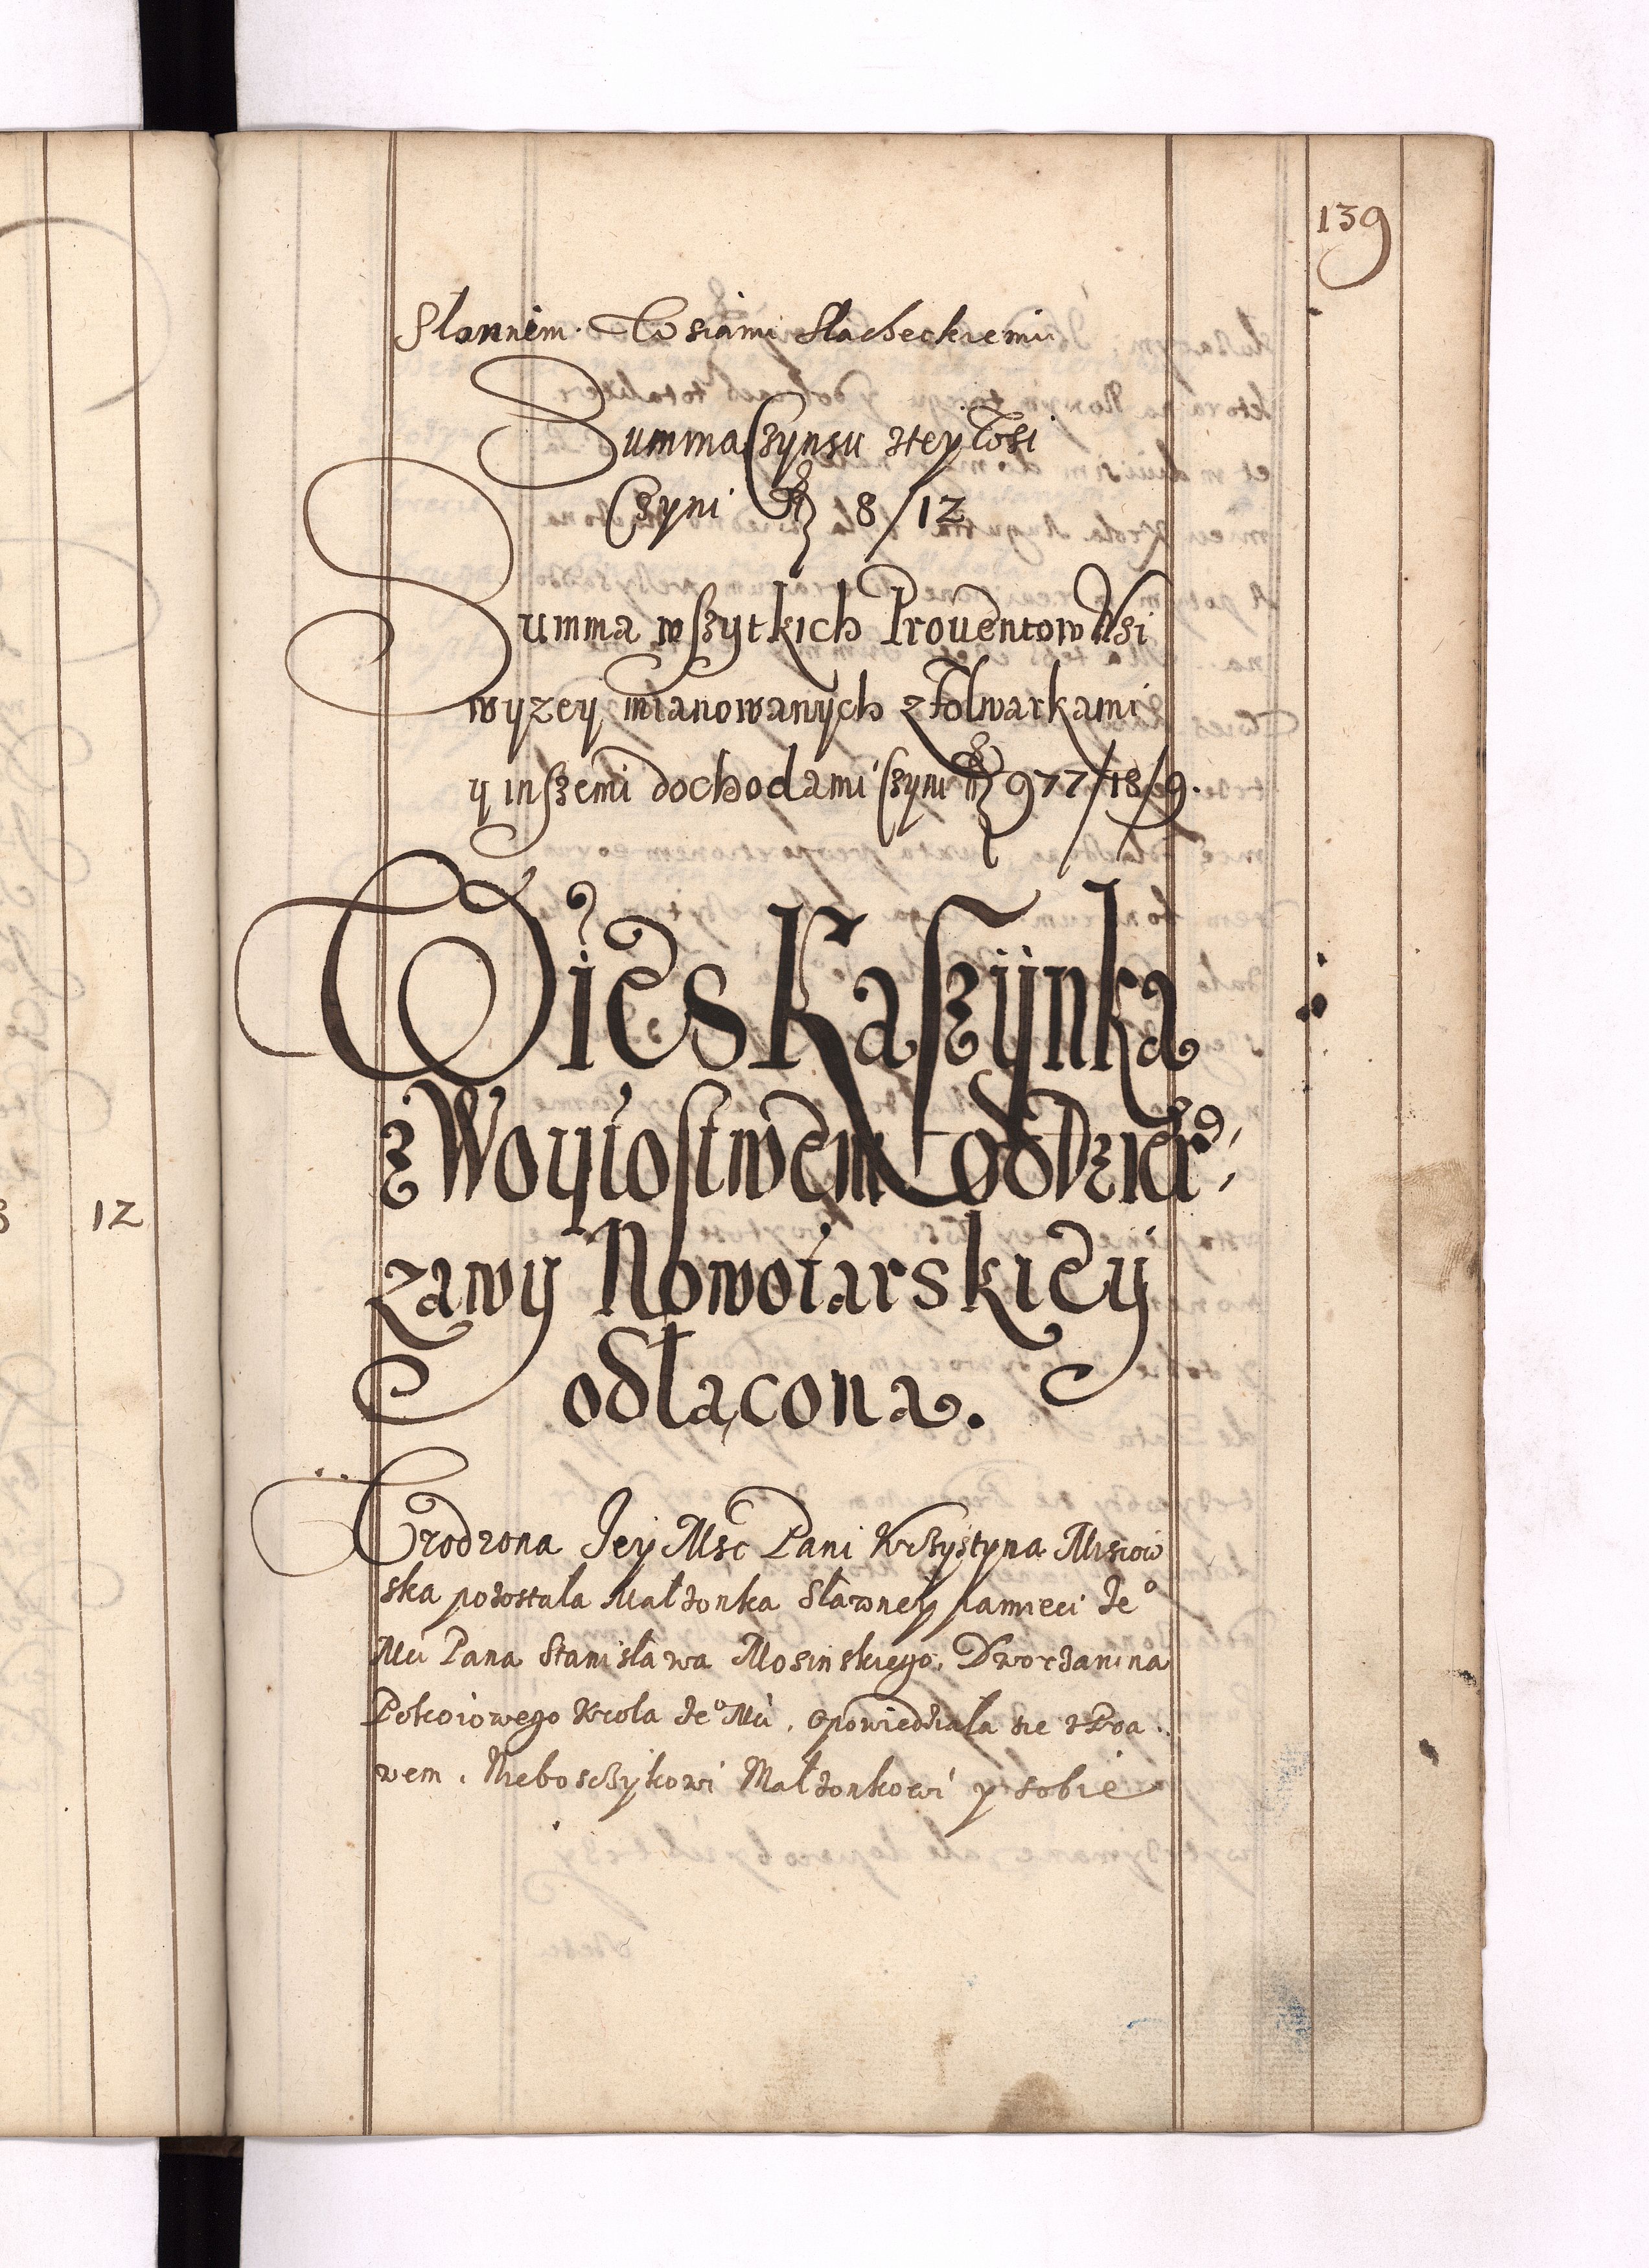 139
Slonnem. Wsiami Slacheckiemi
Summa Czynsu zteyWsi
Czyni fl 8/12
Summa wszytkich Prouentow Wsi
wyzey mianowanych z folwarkami
y inszemi dochodami czyni fl 977/18/9.
Wies Kaszynka
z Woytostwem od Dzier,
zawy Nowotarskiey
odłącona.
Urodzona Jey Msc Pani Krzystyna Misiow
ska pozostala Małzonka Sławney pamieci Je°
Mci Pana Stanisława Mosinskiego. Dworzanina
Pokoiowego Krola Je° Mci, opowiedziala sie z Pra
wem, Nieboszczykowi Małzonkowi y sobie
12